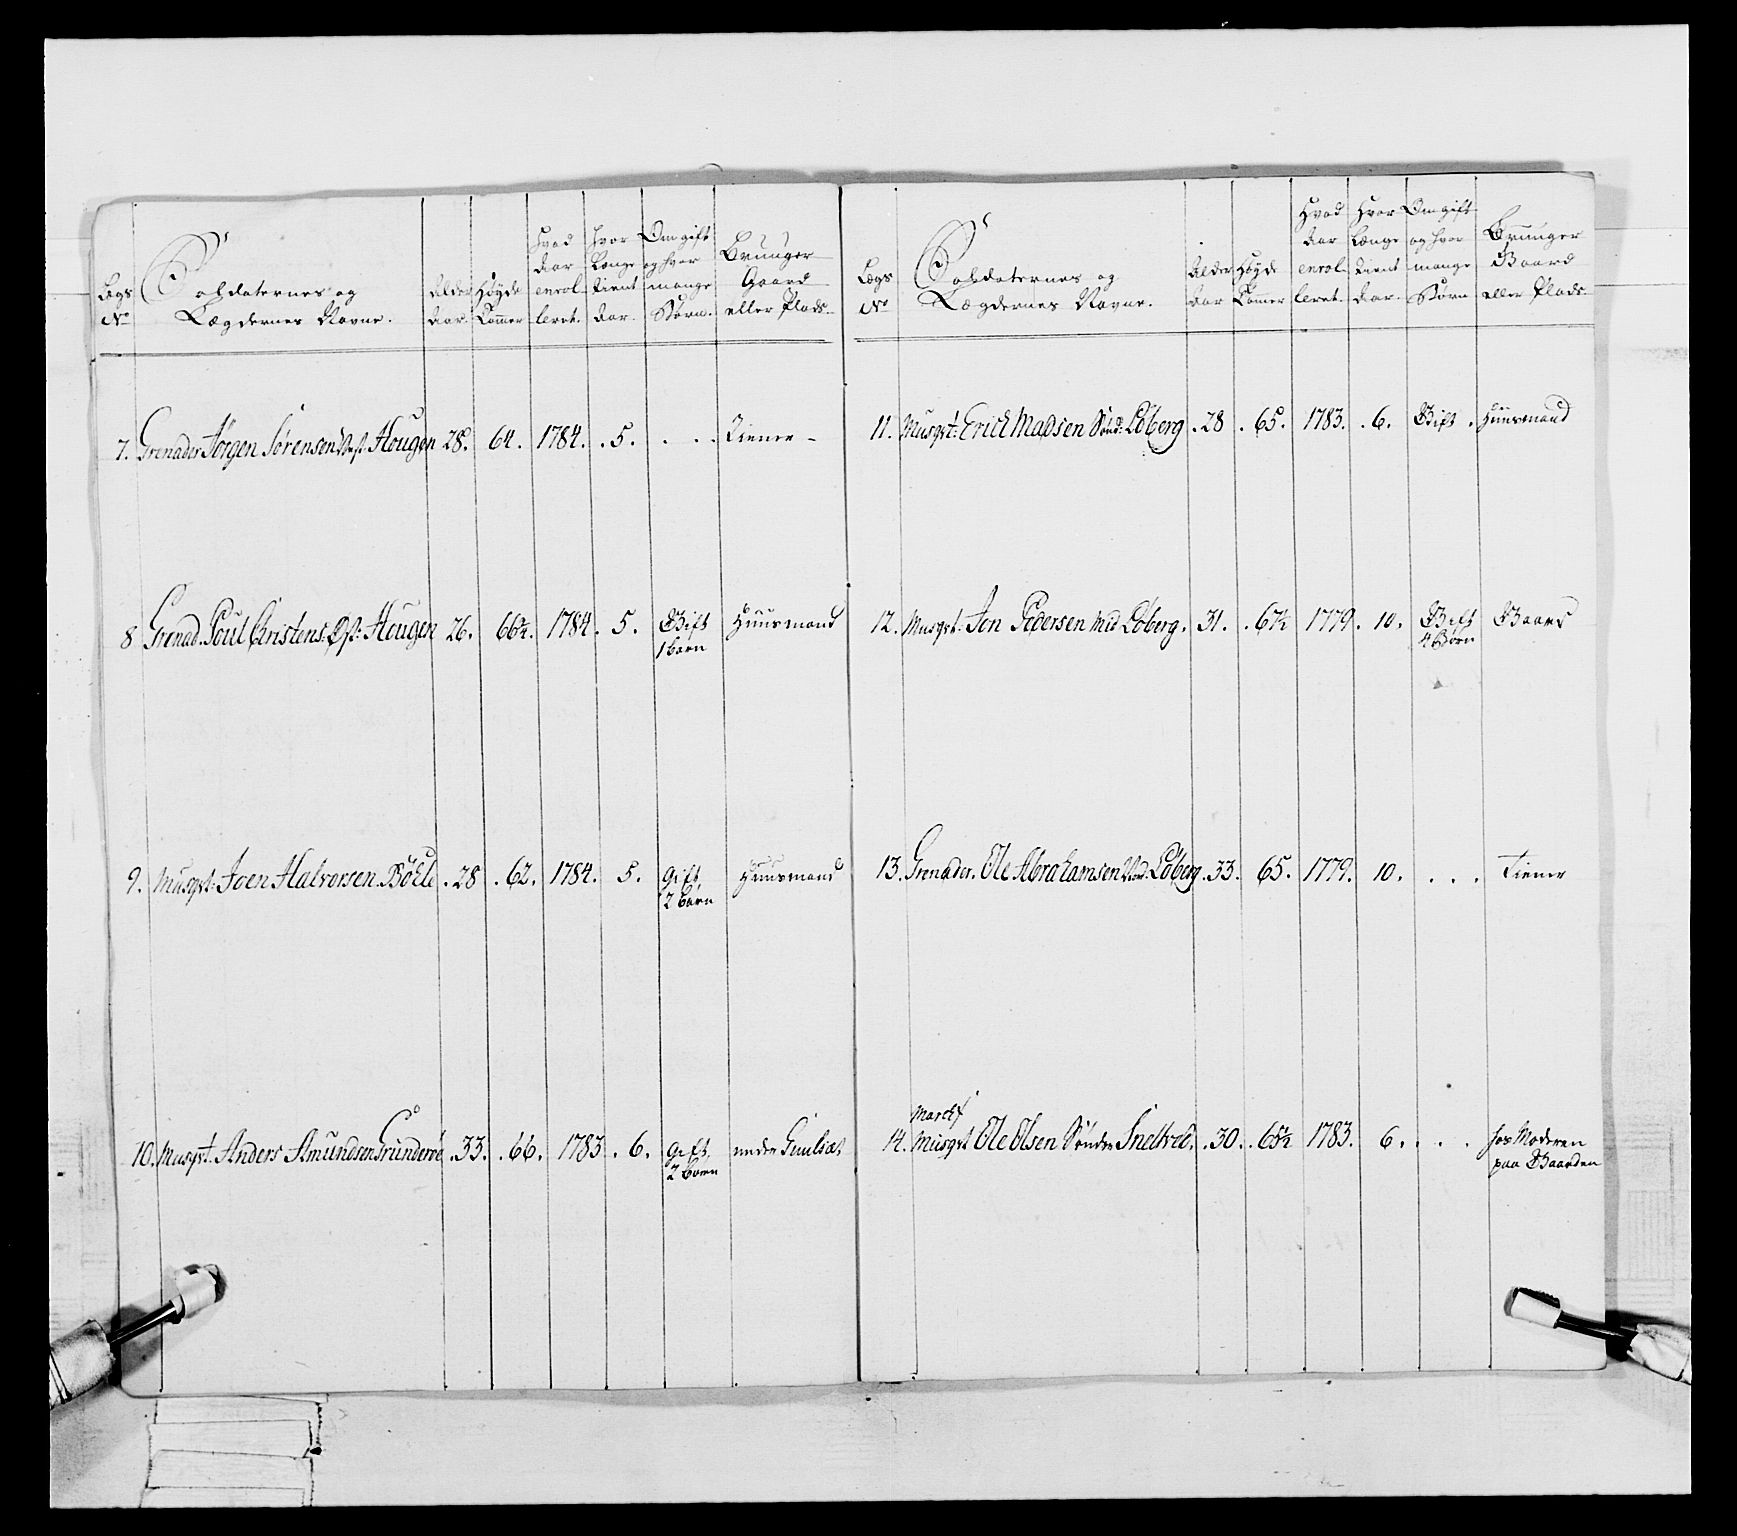 Lægs No
Soldaternes og Lægdernes Navne.
Alder Aar.
Høyde Tommer
Hvad Aar enrolleret.
Hvor Længe tient Aar.
Om gift og hvor mange Børn.
Bruuger Gaard eller Plads.
7. Grenader Jørgen Sørensen Vest Hougen 28. 64. 1784. .5. . . . Tiener -
8 Grenad. Poul Christens: Øst: Hougen 26. 66½. 1784. 5. Gift Huusmand
1 barn
9. Musqt: Joen Halvorsen Bøhle .28 .62. 1784. 5. gift Huusmand
2 børn
10. Musqt. Anders Amundsen Gründerøe .33. .66. 1783 .6. gift under
2 børn
Lægs No
Soldaternes og Lægdernes Navne.
Alder Aar
Høyde Tommer
Hvad Aar enrolleret.
Hvor Længe tient Aar.
Om gift og hvor mange Børn
Bruuger Gaard eller Plads.
11. Musqt: Erich Madsen Sønd: Løberg .28 .65. 1783. .6. Gift . Huusmand
12. Musqt. Jon Pedersen Mid Løberg. 31. .67½ 1779. 10. Gift Gaard
4 Børn
13. Grenader. Ole Abrahamsen Nord: Løberg .33. 65. 1779. 10. . . . Tiener
14. Musqt Ole Olsen Sønder Sneltved. .30. .65½ 1783. 6. . . . hos Moderen
paa Gaarden